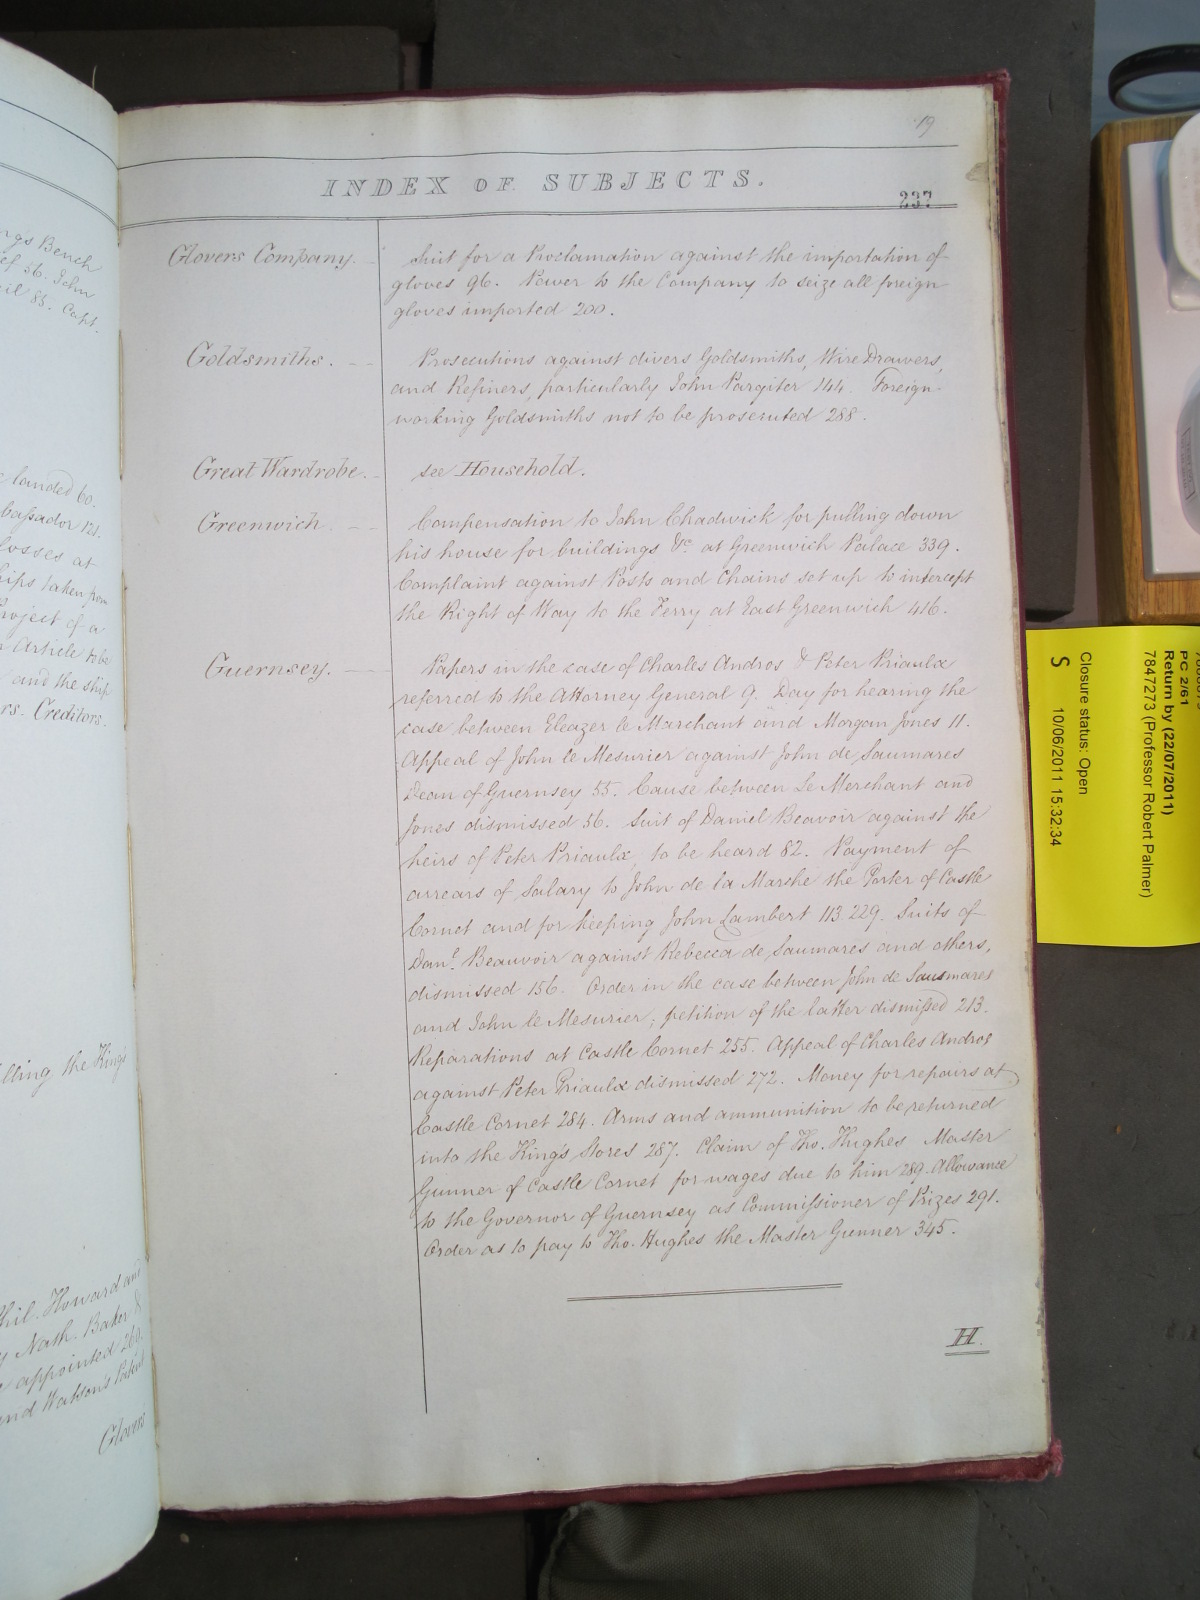 ng's Bench
of 56. John
cil 83. Capt.
e landed 60.
bassador 121.
losses at
hips taken from
Project of a
n Article to be
and the ship
rs. Creditors.
lling the King's
Phil. Howard and
Nath. Baker &
appointed 269.
and Watson's Patent
Glovers
19
INDEX OF SUBJECTS.
237
Glovers Company. Suit for a Proclamation against the importation of
gloves 96. Power to the Company to seize all foreign
gloves imported 200.
Goldsmiths. Prosecutions against divers Goldsmiths, Wire Drawers,
and Refiners, particularly John Pargiter 144. Foreign
working Goldsmiths not to be prosecuted 288.
Great Wardrobe. see Household.
Greenwich. Compensation to John Chadwick for pulling down
his house for buildings &c. at Greenwich Palace 339.
Complaint against Posts and Chains set up to intercept
the Right of Way to the Ferry at East Greenwich 416.
Guernsey. Papers in the case of Charles Andros & Peter Priaulx
referred to the Attorney General 9. Day for hearing the
case between Eleazer le Marchant and Morgan Jones 11.
Appeal of John le Mesurier against John de Saumares
Dean of Guernsey 55. Cause between Le Merchant and
Jones dismissed 56. Suit of Daniel Beavoir against the
heirs of Peter Priaulx, to be heard 82. Payment of
arrears of Salary to John de la Marshe the Porter of Castle
Cornet and for keeping John Lambert 113. 229. Suits of
Danl. Beauvoir against Rebecca de Saumares and others,
dismissed 156. Order in the case between John de Sausmares
and John le Mesurier; petition of the latter dismissed 213.
Reparations at Castle Cornet 255. Appeal of Charles Andros
against Peter Priaulx dismissed 272. Money for repairs at
Castle Cornet 284. Arms and ammunition to be returned
into the King's Stores 287. Claim of Tho. Hughes Master
Gunner of Castle Cornet for wages due to him 289. Allowance
to the Governor of Guernsey as Commissioner of Prizes 291.
Order as to pay to Tho. Hughes the Master Gunner 345.
H.
PC 2/61
Return by (22/07/2011)
7847273 (Professor Robert Palmer)
Closure status: Open
S 10/06/2011 15:32:34